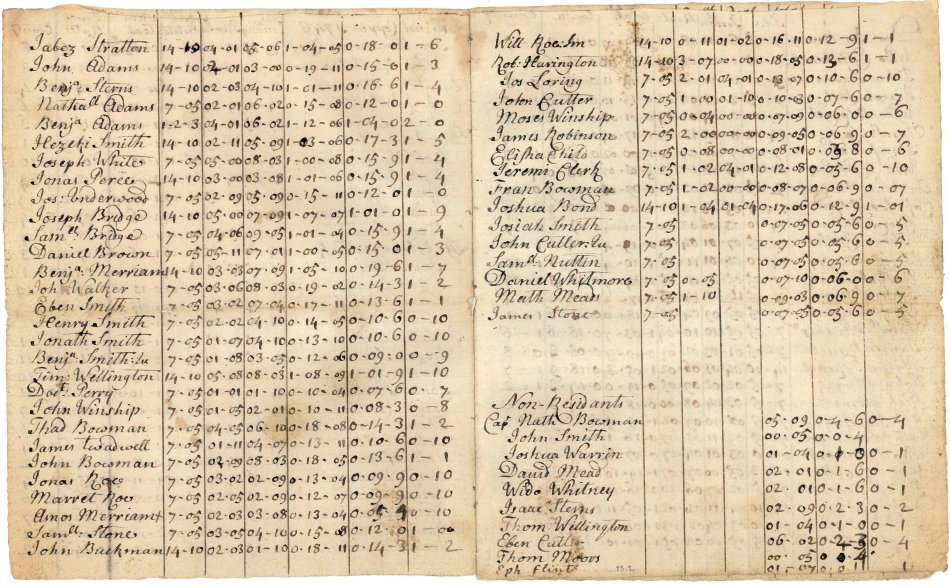 Jabez Stratton 14-10 04-01 05-06 1-04-05 0-18-0 1-6
John Adams 14-10 02-01 03-00 0-19-11 0-15-0 1-3
Benja Sterns 14-10 02-03 04-10 1-01-11 0-16-6 1-4
Nathall Adams 7-05 02-01 06-02 0-15-08 0-12-0 1-0
Benja Adams 1-2-3 04-01 06-02 1-12-06 1-04-0 2-0
Hezeki Smith 14-10 02-11 05-09 1-03-06 0-17-3 1-5
Joseph White 7-05 05-00 08-03 1-00-08 0-15-9 1-4
Jonas Peree 14-10 03-00 03-08 1-01-06 0-15-9 1-4
Jos: Underwood 7-05 02-09 05-09 0-15-11 0-12-0 1-0
Joseph Bridge 14-10 05-00 07-09 1-07-07 1-01-0 1-9
Samll Bridge 7-05 04-06 09-05 1-01-04 0-15-9 1-4
Daniel Brown 7-05 05-11 07-01 1-00-05 0-15-0 1-3
Benja: Merriam 14-10 03-03 07-09 1-05-10 0-19-6 1-7
Joh Walker 7-05 03-06 08-03 0-19-02 0-14-3 1-2
Eben Smith 7-05 03-02 07-04 0-17-11 0-13-6 1-1
Henry Smith 7-05 02-02 04-10 0-14-05 0-10-6 0-10
Jonath Smith 7-05 01-07 04-10 0-13-10 0-10-6 0-10
Benja Smith: Ju 7-05 01-08 03-05 0-12-06 0-09-0 0-9
Tim: Wellington 14-10 05-08 08-03 1-08-09 1-01-9 1-10
Doct Perry 7-05 01-01 01-10 0-10-04 0-07-6 0-7
John Winship 7-05 01-05 02-01 0-10-11 0-08-3 0-8
Thad Bowman 7-05 04-05 06-10 0-18-08 0-14-3 1-2
James Tradwell 7-05 01-11 04-07 0-13-11 0-10-6 0-10
John Bowman 7-05 02-09 08-03 0-18-05 0-13-6 1-1
Jonas Roe 7-05 03-02 02-09 0-13-04 0-09-9 0-10
Marret Roe 7-05 02-05 02-09 0-12-07 0-09-9 0-10
Amos Merriam 7-05 02-03 03-08 0-13-04 0-10
Samll Stone 7-05 03-05 04-10 0-15-08 0-12-0 1-00
John Buckman 14-10 02-03 01-10 0-18-11 0-14-3 1-2
Will Roe: Jn 14-10 0-11 01-02 0-16-11 0-12-9 1-1
Rob: Harington 14-10 3-07 00-00 0-18-05 0-13-6 1-1
Jos Loring 7-05 2-01 04-01 0-13-07 0-10-6 0-10
John Cutler 7-05 1-00 01-10 0-10-03 0-07-6 0-7
Moses Winship 7-05 0-04 00-00 0-07-09 0-06-0 0-6
James Robinson 7-05 2-00 00-00 0-09-05 0-06-9 0-7
Elisha Child 7-05 0-08 00-00 0-08-01 0-6
Jeremi Clerk 7-05 1-02 04-01 0-12-08 0-05-6 0-10
Fran Bowman 7-05 1-02 00-00 0-08-07 0-06-9 0-07
Joshua Bond 14-10 1-04 01-04 0-17-06 0-12-9 1-01
Josiah Smith 7-05 0-07-05 0-05-6 0-5
John Cutler: Ju 7-05 0-07-05 0-05-6 0-5
Samll Nuttin 7-05 0-07-10 0-05-6 0-5
Daniel Whitmore 7-05 0-05 0-07-10 0-06-0 0-6
Math Mears 7-05 1-10 0-09-03 0-06-9 0-7
James Stone 7-05 0-07-05 0-05-6 0-5
Non-Residants
Cap Nath Bowman 05-09 0-4-6 0-4
John Smith 00-05 0-0-4
Joshua Warrin 01-04 0-1
David Mead 02-01 0-1-6 0-1
Wido Whitney 02-01 0-1-6 0-1
Isaac Sterns 02-09 0-2-3 0-2
Thom Wellington 01-04 0-1-0 0-1
Eben Cutler 06-02 0-4
Thom Moors 00-05 0-0-4
Eph Flint 01-07